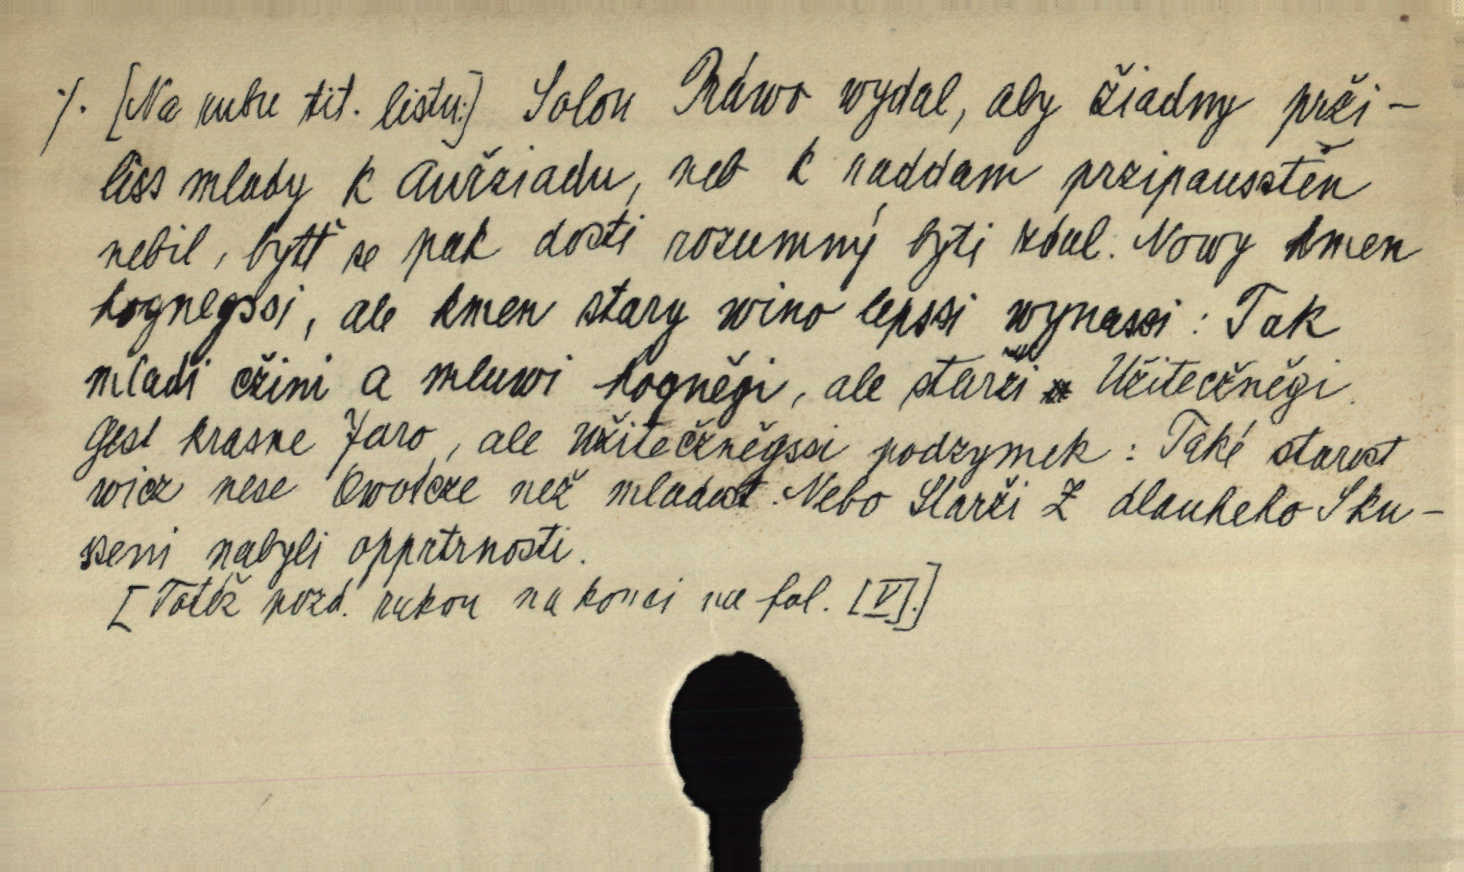 ·/. [Na rubu tit. listu:] Solon Práwo wydal, aby žiadny prži-
liss mlady k Auržiadu, neb k raddam przipausstěn
nebil, bytť se pak dosti rozumný byti zdal. Nowy kmen
hognegssi, ale kmen stary wino lepssi wynassi: Tak
mladi cžini a mluwi hogněgi, ale starži Užitecžněgi.
Gest krasne Jaro, ale Užitecžněgssi podzymek: Také starost
wicz nese Owotcze než mladost. Nebo Starži Z dlauheho Sku-
sseni nabyli opprtrnosti.
[Totéž pozd. rukou na konci na fol. [V].]